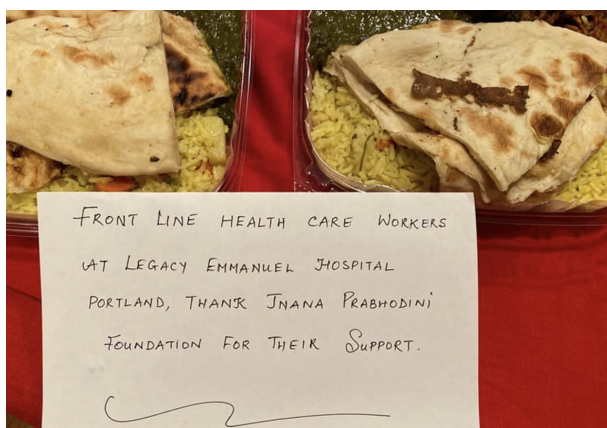 FRONT LINE HEALTH CARE WORKERS
AT LEGACY EMMANUEL HOSPITAL
PORTLAND, THANK JNANA PRABHODINI
FOUNDATION FOR THEIR SUPPORT.